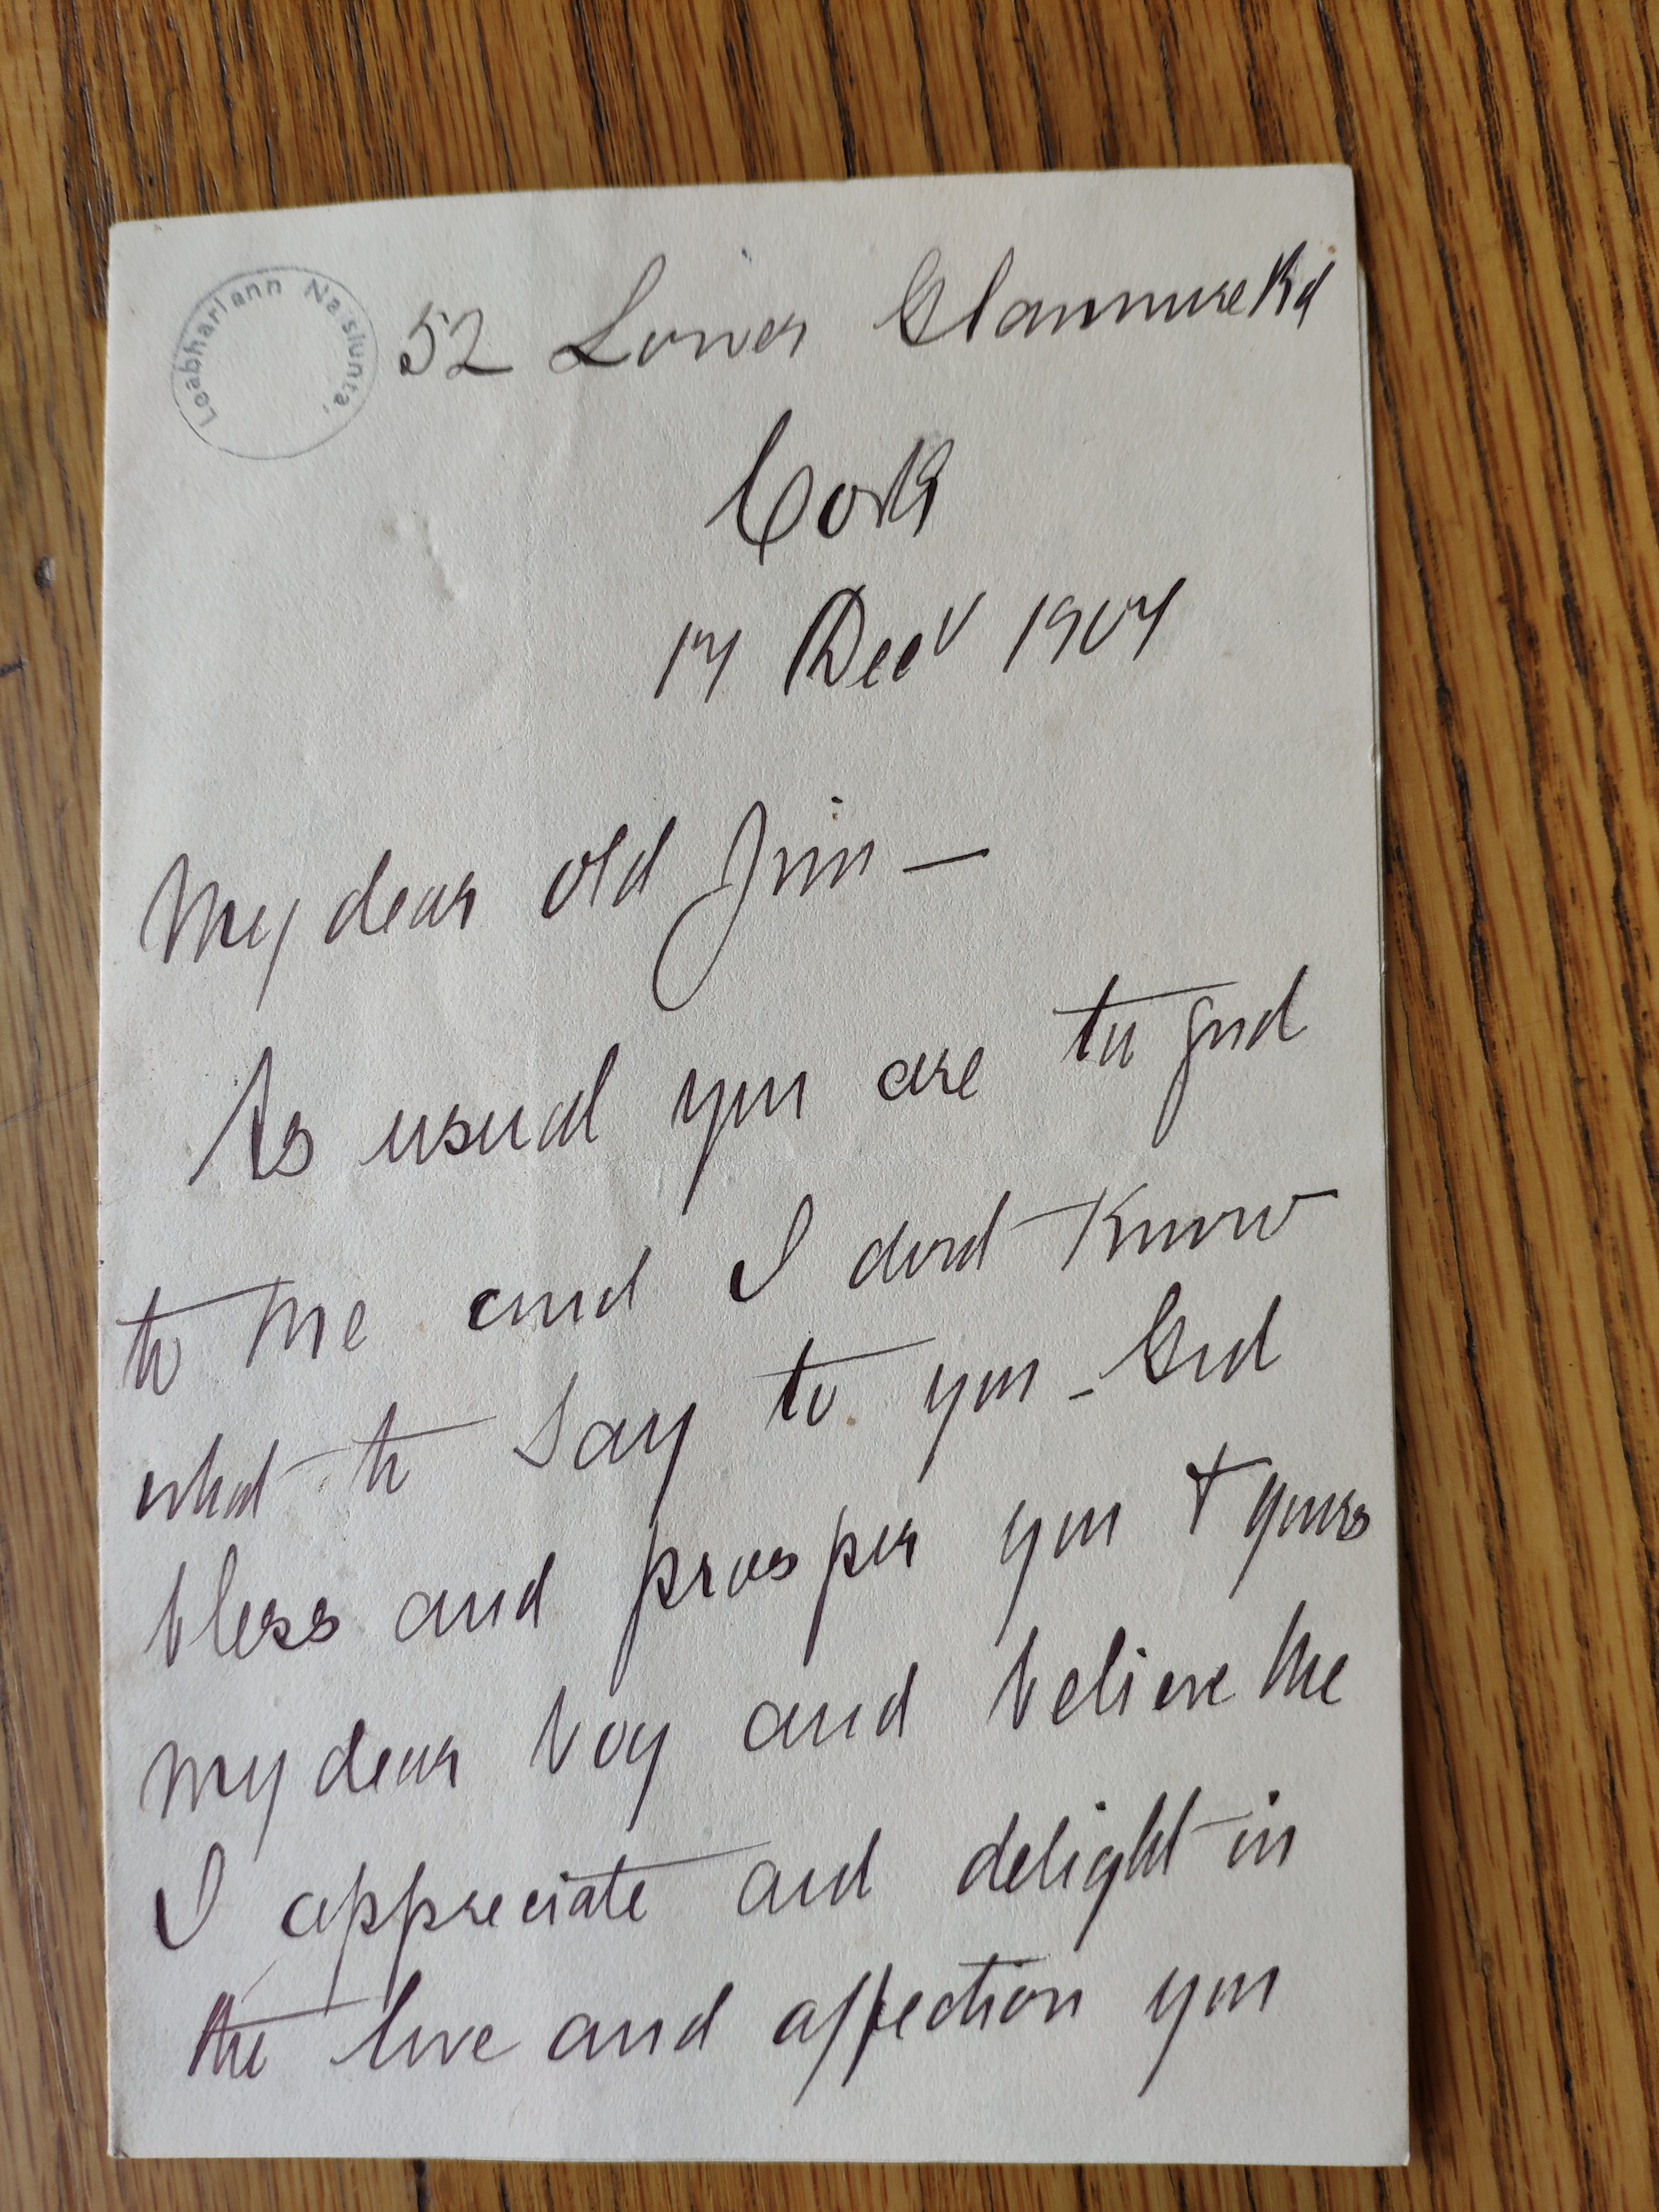 Leabharlann Naisiunta,
52 Lower Glanmire Rd
Cork
17 Decr 1907
My dear old Jim —
As usual you are too good
to me and I dont know
what to say to you - God
bless and prosper you & yours
my dear boy and believe me
I appreciate and delight in
the love and affection you